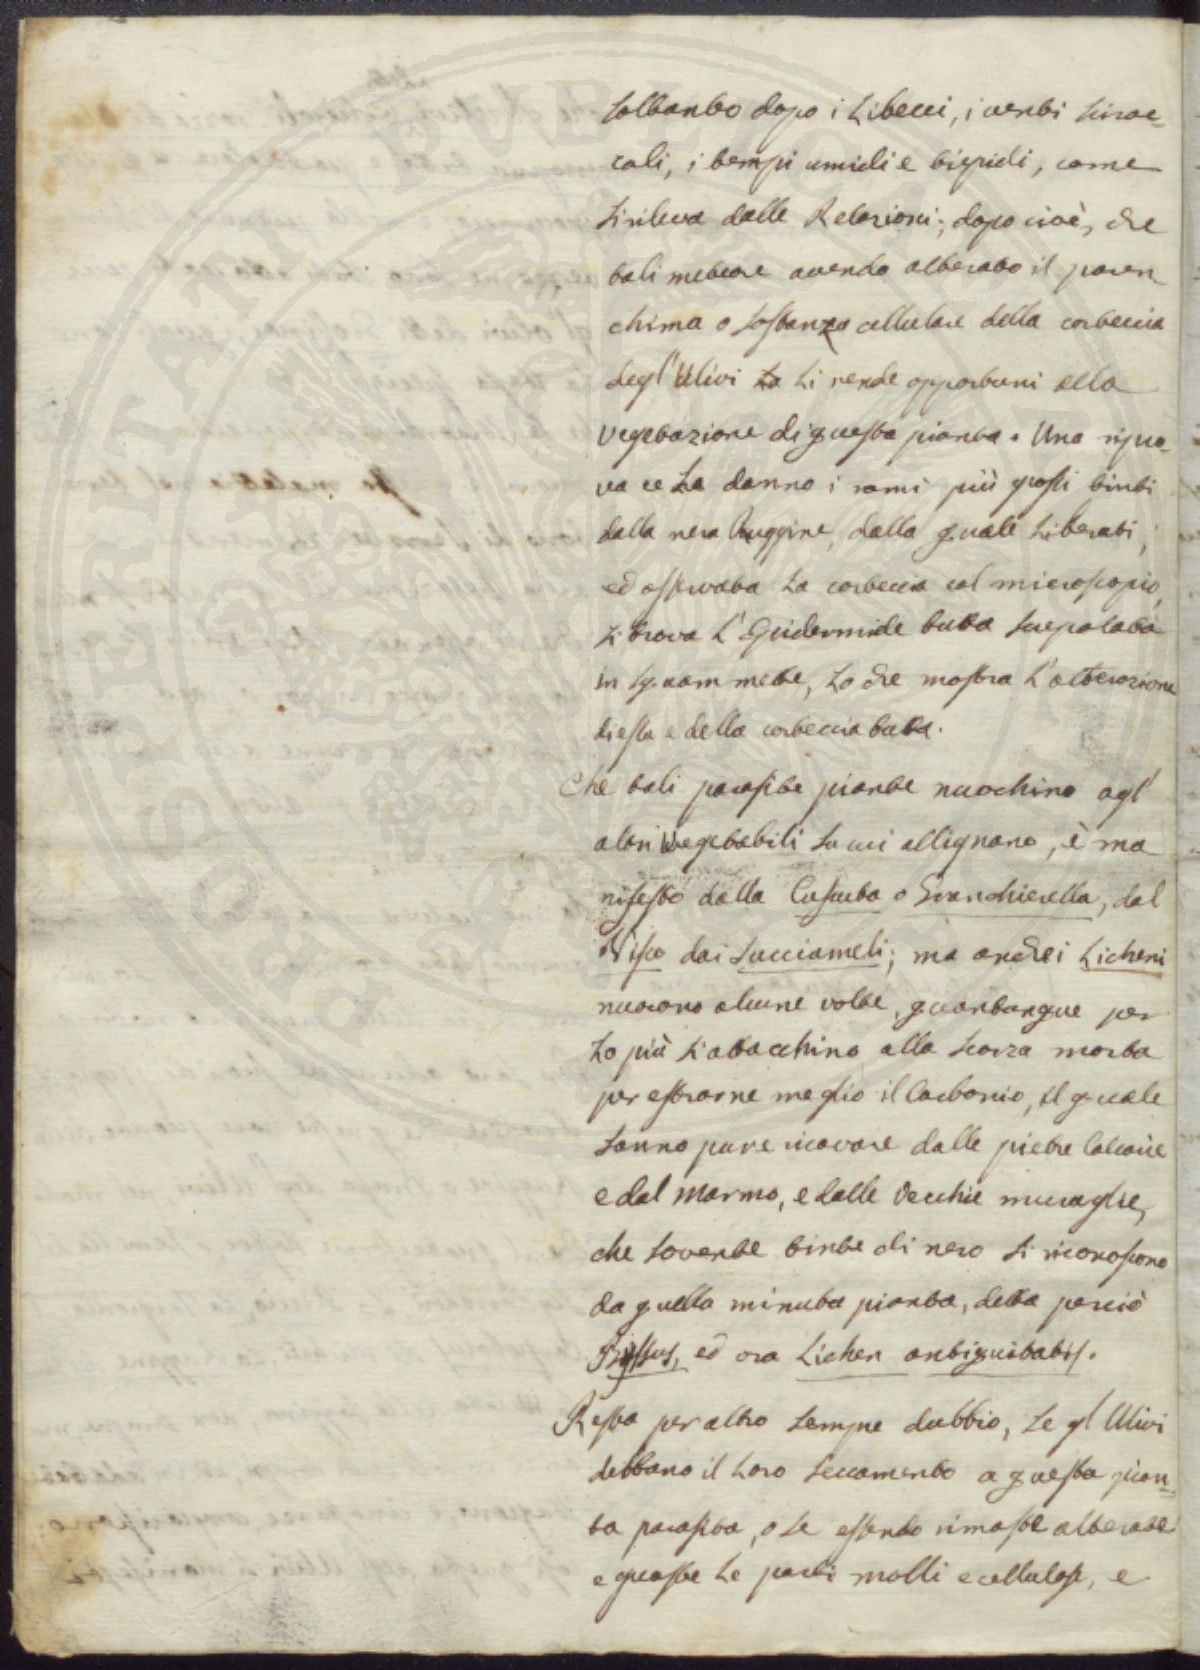 soltanto dopo i Libecci, i venti sciroc-
cali, i tempi umidi e tiepidi, come
si rileva dalle Relazioni; dopo cioè, che
tali meteore avendo alterato il paren-
chima o sostanza cellulare della corteccia
degl'Ulivi la si rende opportuni alla
vegetazione di questa pianta. Una ripro-
va ce la danno i rami più grossi tinti
dalla nera Ruggine, dalla quale liberati,
ed osservata la corteccia col microscopio,
si trova l'Epidermide tutta screpolata
in squammette, lo che mostra l'alterazione
di essa e della corteccia tutta.
Che tali parasite piante nuochino agl'
altri vegetabili su cui allignano, è ma
nifesto dalla Cuscuta o Granchierella, dal
Visco dai Succiameli; ma anche i Licheni
nuocono alcune volte, quantunque per
lo più s'attacchino alla scorza morta
per estrarne meglio il Carbonio, il quale
sanno pure ricavare dalle pietre Calcarie
e dal Marmo, e dalle vecchie muraglie,
che sovente tinte di nero si riconoscono
da quella minuta pianta, detta perciò
Byssus, ed ora Lichen antiquitatis.
Resta per altro sempre dubbio, se gl'Ulivi
debbano il loro seccamento a questa pian-
ta parasita, o se essendo rimaste alterate
e guaste le parti molli e cellulose, e